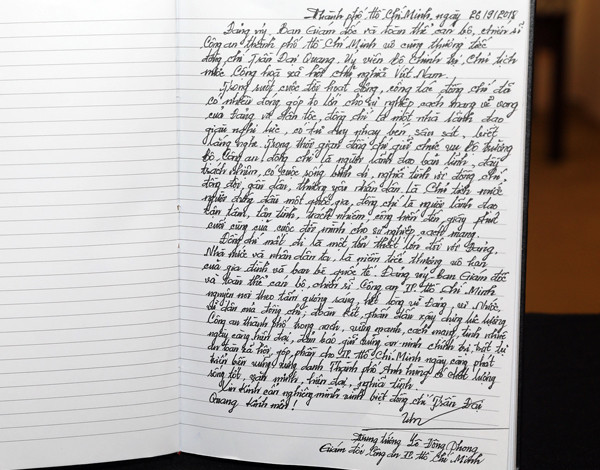 Thành phố Hồ Chí Minh, ngày 26/9/2018
Đảng ủy, Ban Giám đốc và toàn thể cán bộ, chiến sĩ
Công an thành phố Hồ Chí Minh vô cùng thương tiếc
đồng chí Trần Đại Quang, Ủy viên Bộ Chính trị, Chủ tịch
nước Cộng hòa xã hội chủ nghĩa Việt Nam.
Trong suốt cuộc đời hoạt động, công tác đồng chí đã
có nhiều đóng góp to lớn cho sự nghiệp cách mạng vẻ vang
của Đảng và dân tộc, đồng chí là một nhà lãnh đạo
giàu nghị lực, có tư duy nhạy bén, sâu sát, biết
lắng nghe. Trong thời gian đồng chí giữ chức vụ Bộ trưởng
Bộ Công an đồng chí là người lãnh đạo bản lĩnh, đầy
trách nhiệm, có cuộc sống bình dị, nghĩa tình với đồng chí,
đồng đội, gần dân, thương yêu nhân dân. Là Chủ tịch nước
người đứng đầu một quốc gia, đồng chí là người lãnh đạo
tận tâm, tận tình, trách nhiệm, cống hiến đến giây phút
cuối cùng của cuộc đời mình cho sự nghiệp cách mạng.
Đồng chí mất đi là một tổn thất lớn đối với Đảng,
Nhà nước và nhân dân ta, là niềm tiếc thương vô hạn
của gia đình và bạn bè quốc tế. Đảng ủy, Ban Giám đốc
và toàn thể cán bộ, chiến sĩ Công an TP. Hồ Chí Minh
nguyện noi theo tấm gương sáng, hết lòng vì Đảng, vì Nước,
vì dân mà đồng chí; đoàn kết, phấn đấu xây dựng lực lượng
Công an thành phố trong sạch, vững mạnh, cách mạng, tinh nhuệ
ngày càng hiện đại, đảm bảo giữ vững an ninh chính trị, trật tự
an toàn xã hội, góp phần cho TP. Hồ Chí Minh ngày càng phát
triển bền vững, xứng danh Thành phố Anh hùng có chất lượng
sống tốt, văn minh, hiện đại, nghĩa tình.
Xin kính cẩn nghiêng mình vĩnh biệt đồng chí Trần Đại
Quang kính mến!
Trung tướng Lê Đông Phong
Giám đốc Công an TP. Hồ Chí Minh